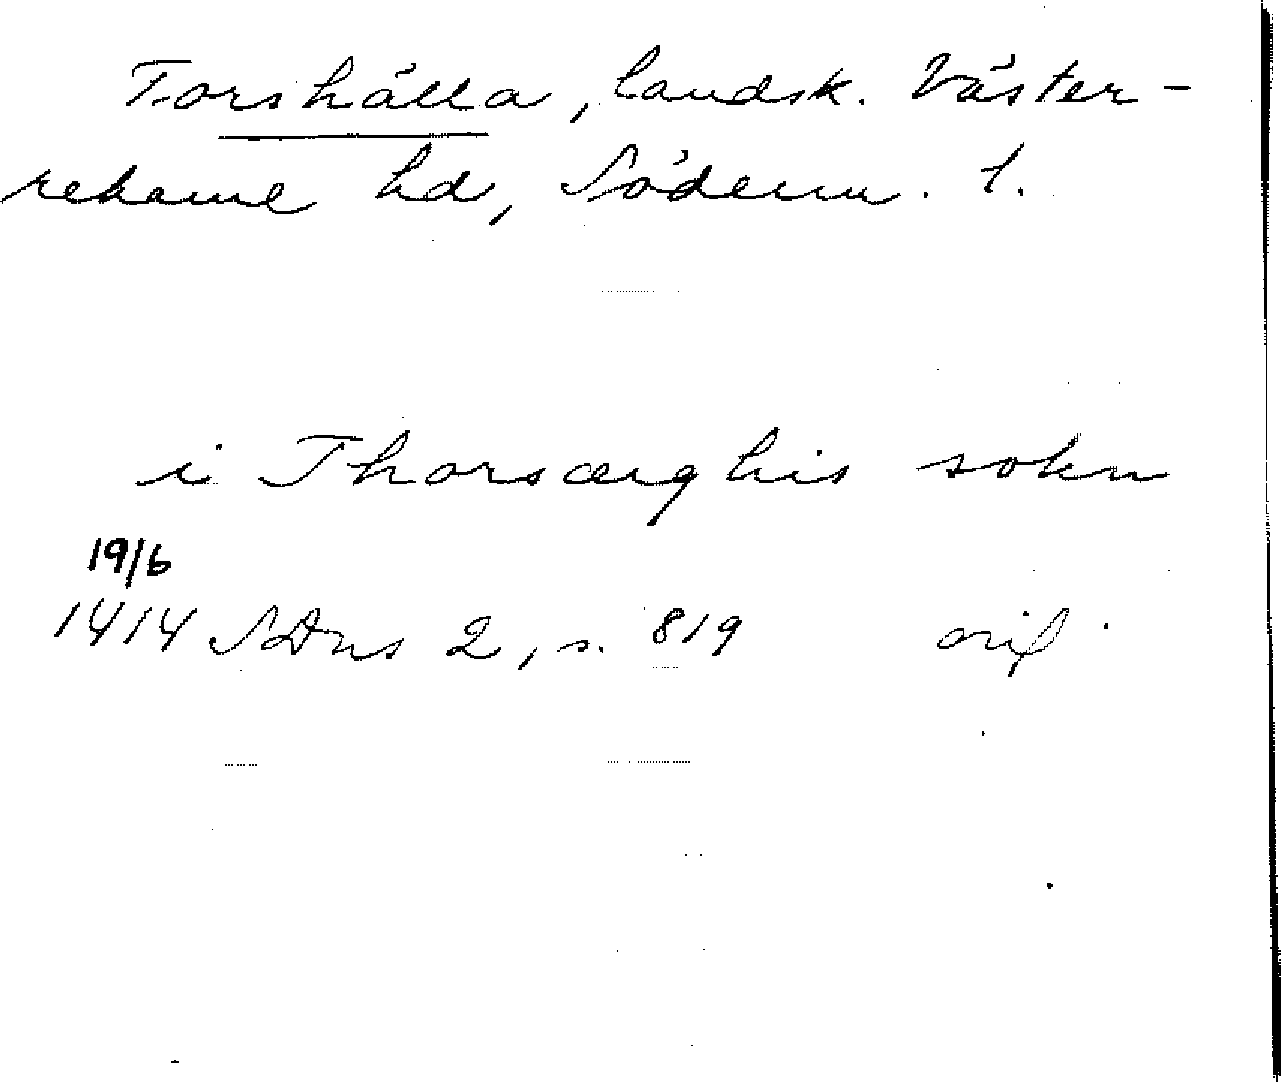 Torshälla, landsk. Väster-
rekarne hd, Söderm. l.
i Thorsærghis sokn
19/6
1414 SDns 2, s. 819 orig.